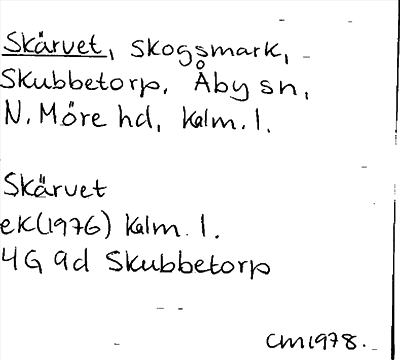 Skärvet, skogsmark,
Skubbetorp, Åby sn,
N. Möre hd, Kalm. l.
Skärvet
ek(1976) Kalm. l.
4G 9d Skubbetorp
CM1978.